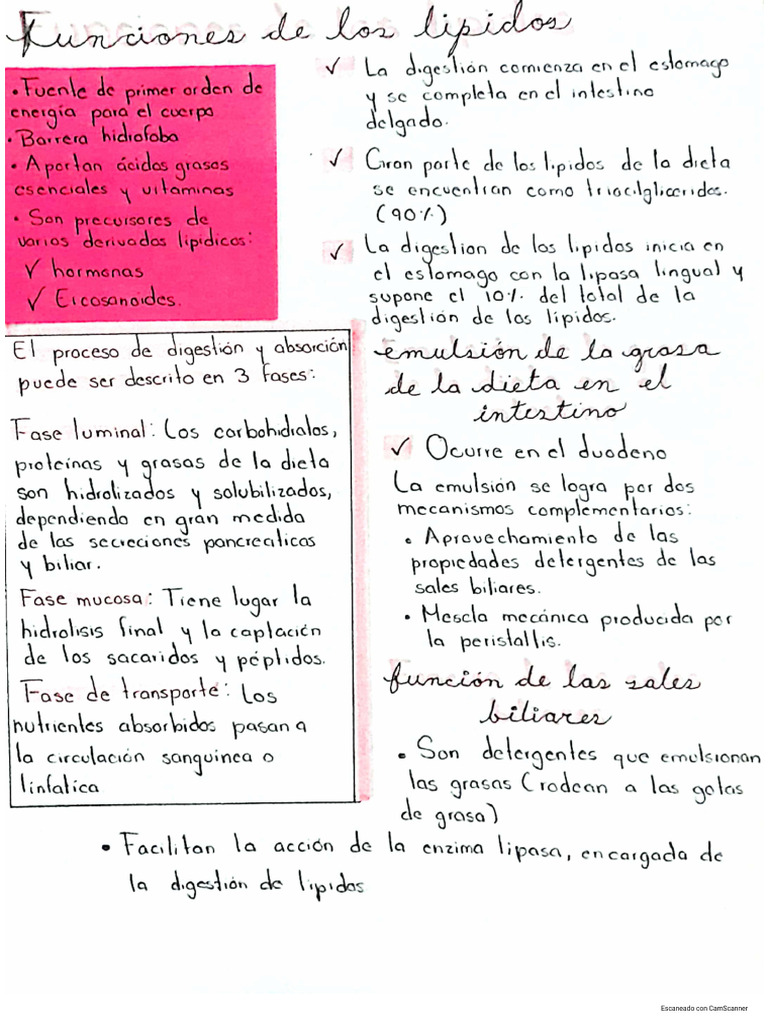 Funciones de los lipidos
• Fuente de primer orden de
energía para el cuerpo
• Barrera hidrofoba
• Aportan ácidos grasos
esenciales y vitaminas
• Son precursores de
varios derivados lipídicos:
✓ hormonas
✓ Eicosanoides.
✓ La digestión comienza en el estomago
y se completa en el intestino
delgado.
✓ Gran parte de los lipidos de la dieta
se encuentran como triacilgliceridos.
(90%)
✓ La digestion de los lipidos inicia en
el estomago con la lipasa lingual y
supone el 10% del total de la
digestión de los lípidos.
El proceso de digestión y absorción
puede ser descrito en 3 fases:
Fase luminal: Los carbohidratos,
proteínas y grasas de la dieta
son hidrolizados y solubilizados,
dependiendo en gran medida
de las secreciones pancreaticas
y biliar.
Fase mucosa: Tiene lugar la
hidrolisis final y la captación
de los sacaridos y péptidos.
Fase de transporte: Los
nutrientes absorbidos pasan a
la circulación sanguinea o
linfatica
emulsión de la grasa
de la dieta en el
intestino
✓ Ocurre en el duodeno
La emulsión se logra por dos
mecanismos complementarios:
• Aprovechamiento de las
propiedades detergentes de las
sales biliares.
• Mescla mecánica producida por
la peristaltis.
función de las sales
biliares
• Son detergentes que emulsionan
las grasas (rodean a las gotas
de grasa)
• Facilitan la acción de la enzima lipasa, encargada de
la digestión de lipidos
Escaneado con CamScanner